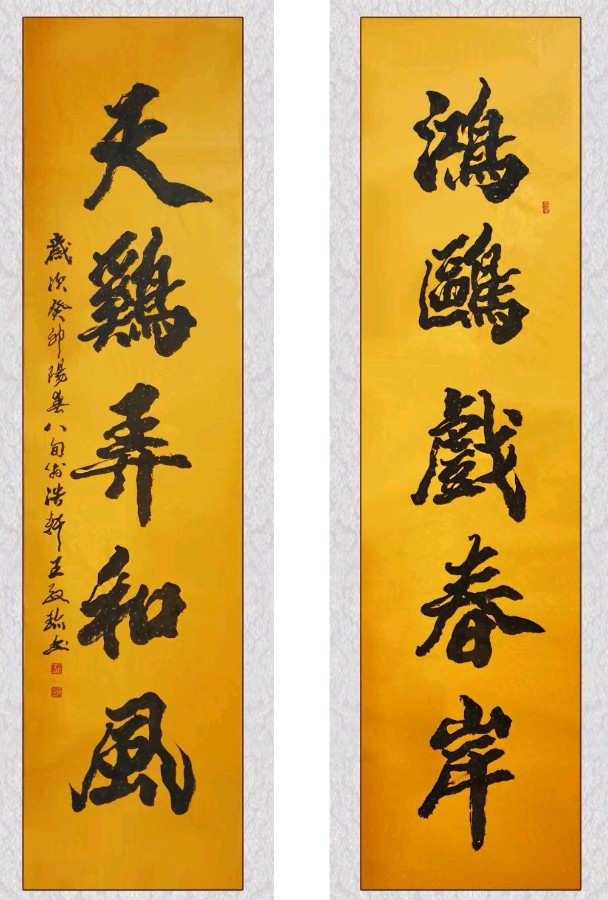 鴻鷗戲春岸
天鷄弄和風
歲次癸卯陽春八旬翁浩軒王書